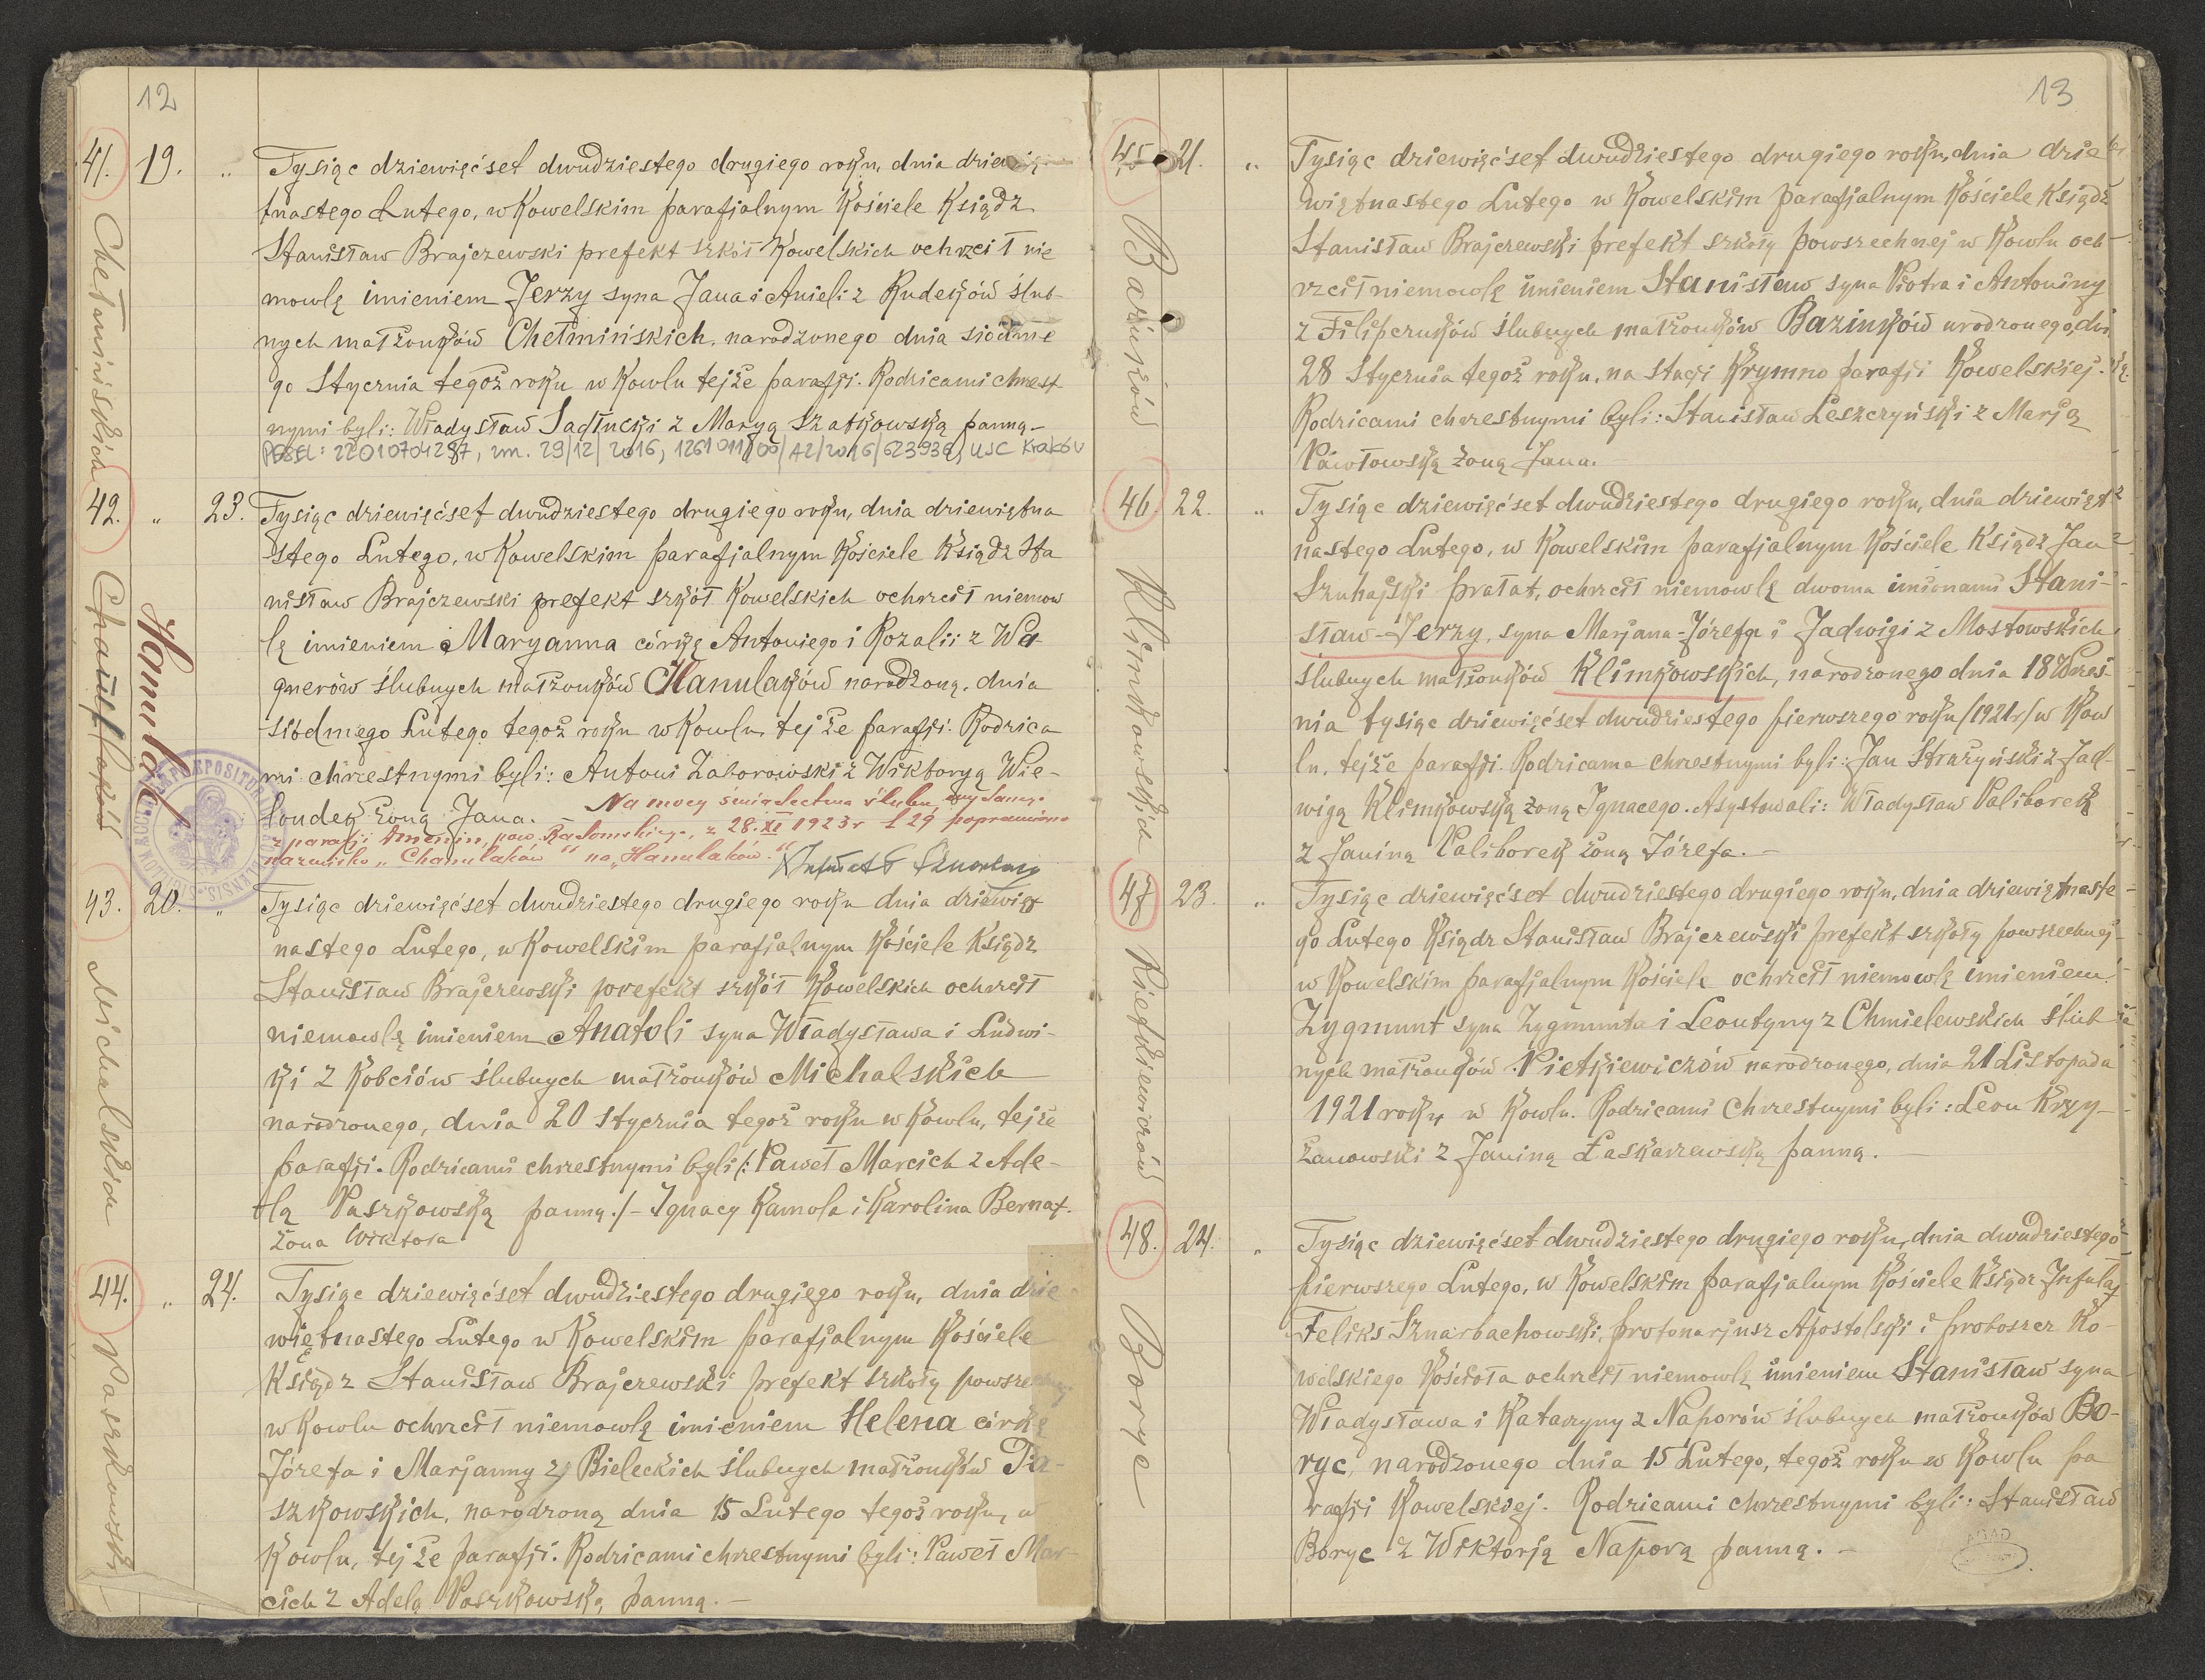 12
41.
19.
"
Tysiąc dziewięćset dwudziestego drugiego roku, dnia dziewię
tnastego Lutego, w Kowelskim parafjalnym Kościele Ksiądz
Stanisław Brajczewski prefekt szkół Kowelskich ochrzcił nie
mowlę imieniem Jerzy syna Jana i Anieli z Rudeków ślub-
nych małżonków Chełmińskich, narodzonego dnia siódme
go Stycznia tegoż roku w Kowlu tejże parafji. Rodzicami chrzest
nymi byli: Władysław Sadłucki z Maryą Szatkowską panną.-
PESEL: 22010704287, zm. 29/12/2016, 1261011/00/AZ/2016/623936, USC Kraków
Chełmińskich
42.
"
23.
Tysiąc dziewięćset dwudziestego drugiego roku, dnia dziewiętna
stego Lutego, w Kowelskim parafjalnym Kościele Ksiądz Sta
nisław Brajczewski prefekt szkół Kowelskich ochrzcił niemow
lę imieniem Maryanna córkę Antoniego i Rozalii z Wa-
gnerów ślubnych małżonków Hanulaków narodzoną, dnia
siódmego Lutego tegoż roku w Kowlu, tejże parafji. Rodzica
mi chrzestnymi byli: Antoni Zaborowski z Wiktoryą Wie-
loudek żoną Jana.
Na mocy świadectwa ślubu, wydanego
z parafji pow. Radomskiego, z 28.XI 1923r 129 poprawiono
nazwisko „Chanulaków" na „Hanulaków."
Hanulak
43.
20.
"
Tysiąc dziewięćset dwudziestego drugiego roku dnia dziewięt
nastego Lutego, w Kowelskim parafjalnym Kościele Ksiądz
Stanisław Brajczewski prefekt szkół Kowelskich ochrzcił
niemowlę imieniem Anatoli syna Władysława i Ludwi-
ki z Kobciów ślubnych małżonków Michalskich
narodzonego, dnia 20 stycznia tegoż roku w Kowlu, tejże
parafji. Rodzicami chrzestnymi byli/: Paweł Marcich z Ade-
lą Paszkowską panną./- Ignacy Kamola i Karolina Bernat.
żona Wiktora
Michalskich
44.
"
24.
Tysiąc dziewięćset dwudziestego drugiego roku, dnia dzie
więtnastego Lutego w Kowelskim parafjalnym Kościele
Ksiądz Stanisław Brajczewski prefekt szkoły powszechnej
w Kowlu ochrzcił niemowlę imieniem Helena córkę
Józefa i Marjanny z Bieleckich ślubnych małżonków Pa-
szkowskich, narodzoną dnia 15 Lutego tegoż roku, w
Kowlu, tejże parafji. Rodzicami chrzestnymi byli: Paweł Mar-
cich z Adelą Paszkowską panną.-
Paszkowski
13
45
21.
"
Tysiąc dziewięćset dwudziestego drugiego roku, dnia dzie
więtnastego Lutego w Kowelskim parafjalnym Kościele Ksiądz
Stanisław Brajczewski prefekt szkoły powszechnej w Kowlu och-
rzcił niemowlę imieniem Stanisław syna Piotra i Antoniny
z Filipczuków ślubnych małżonków Bazinków urodzonego, dni
28 Stycznia tegoż roku, na stacji Krymno parafji Kowelskiej.
Rodzicami chrzestnymi byli: Stanisław Leszczyński z Marją
Pawłowską żoną Jana.
Bazinków
46.
22.
"
Tysiąc dziewięćset dwudziestego drugiego roku, dnia dziewięt
nastego Lutego, w Kowelskim parafjalnym Kościele Ksiądz Jan
Szuhajski prałat, ochrzcił niemowlę dwoma imionami Stani-
sław-Jerzy, syna Marjana-Józefa i Jadwigi z Mostowskich
ślubnych małżonków Klimkowskich, narodzonego dnia 18 Wrześ-
nia tysiąc dziewięćset dwudziestego pierwszego roku /1921r/ w Kow
lu, tejże parafji. Rodzicama chrzestnymi byli: Jan Strażyński z Jad-
wigą Klimkowską żoną Ignacego. Asystowali: Władysław Paliborek
z Janiną Paliborek żoną Józefa.-
Klimkowskich
47
23.
"
Tysiąc dziewięćset dwudziestego drugiego roku, dnia dziewiętnaste-
go Lutego Ksiądz Stanisław Brajczewski prefekt szkoły powszechnej
w Kowelskim parafjalnym Kościele ochrzcił niemowlę imieniem
Zygmunt syna Zygmunta i Leontyny z Chmielewskich ślub
nych małżonków Pietkiewiczów narodzonego, dnia 21 Listopada
1921 roku, w Kowlu. Rodzicami Chrzestnymi byli: Leon Krzy-
żanowski z Janiną Łaskarzewską panną.
Pietkiewiczów
48.
24.
"
Tysiąc dziewięćset dwudziestego drugiego roku, dnia dwudziestego
pierwszego Lutego, w Kowelskim parafjalnym Kościele Ksiądz Infułat
Feliks Sznarbachowski, protonarjusz Apostolski i proboszcz Ko-
welskiego Kościoła ochrzcił niemowlę imieniem Stanisław syna
Władysława i Katarzyny z Naporów ślubnych małżonków Bo-
ryc, narodzonego dnia 15 Lutego, tegoż roku w Kowlu pa
rafji Kowelskiej. Rodzicami chrzestnymi byli: Stanisław
Boryc z Wiktorją Naporą panną.-
Boryc
AGAD